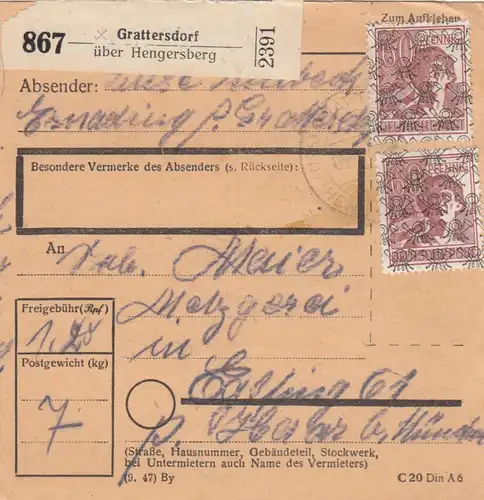 Zum Aufkleben
867
Grattersdorf
über Hengersberg
2391
PFENNIG
Absender:
Besondere Vermerke des Absenders (s. Rückseite):
An
Maier
Metzgerei
in
Freigebühr (Rpf)
1,20
Postgewicht (kg)
7
Eglfing 61
p. Haar b. Münche
(Straße, Hausnummer, Gebäudeteil, Stockwerk,
bei Untermietern auch Name des Vermieters)
(9. 47) By
C 20 Din A 6